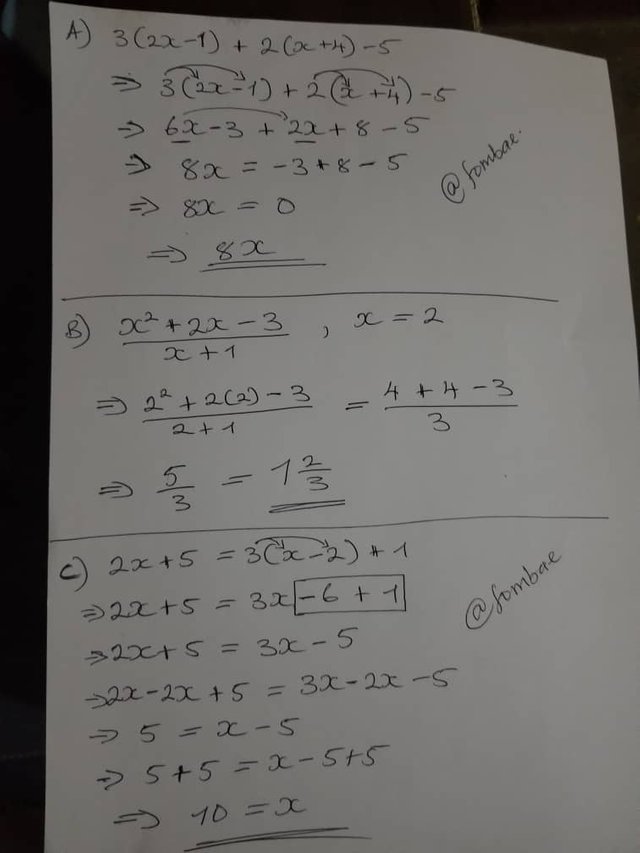 A) 3(2x-1) + 2(x+4) -5
⇒ 3(2x-1) + 2(x+4) -5
⇒ 6x-3 + 2x + 8 - 5
⇒ 8x = -3+8-5
⇒ 8x = 0
⇒ 8x
@fombae.
B) x² + 2x - 3 / x + 1 , x = 2
⇒ 2² + 2(2) - 3 / 2 + 1 = 4 + 4 - 3 / 3
⇒ 5/3 = 1 2/3
C) 2x+5 = 3(x-2) + 1
⇒ 2x+5 = 3x -6 + 1
⇒ 2x+5 = 3x - 5
⇒ 2x-2x+5 = 3x-2x-5
⇒ 5 = x-5
⇒ 5+5 = x-5+5
⇒ 10 = x
@fombae